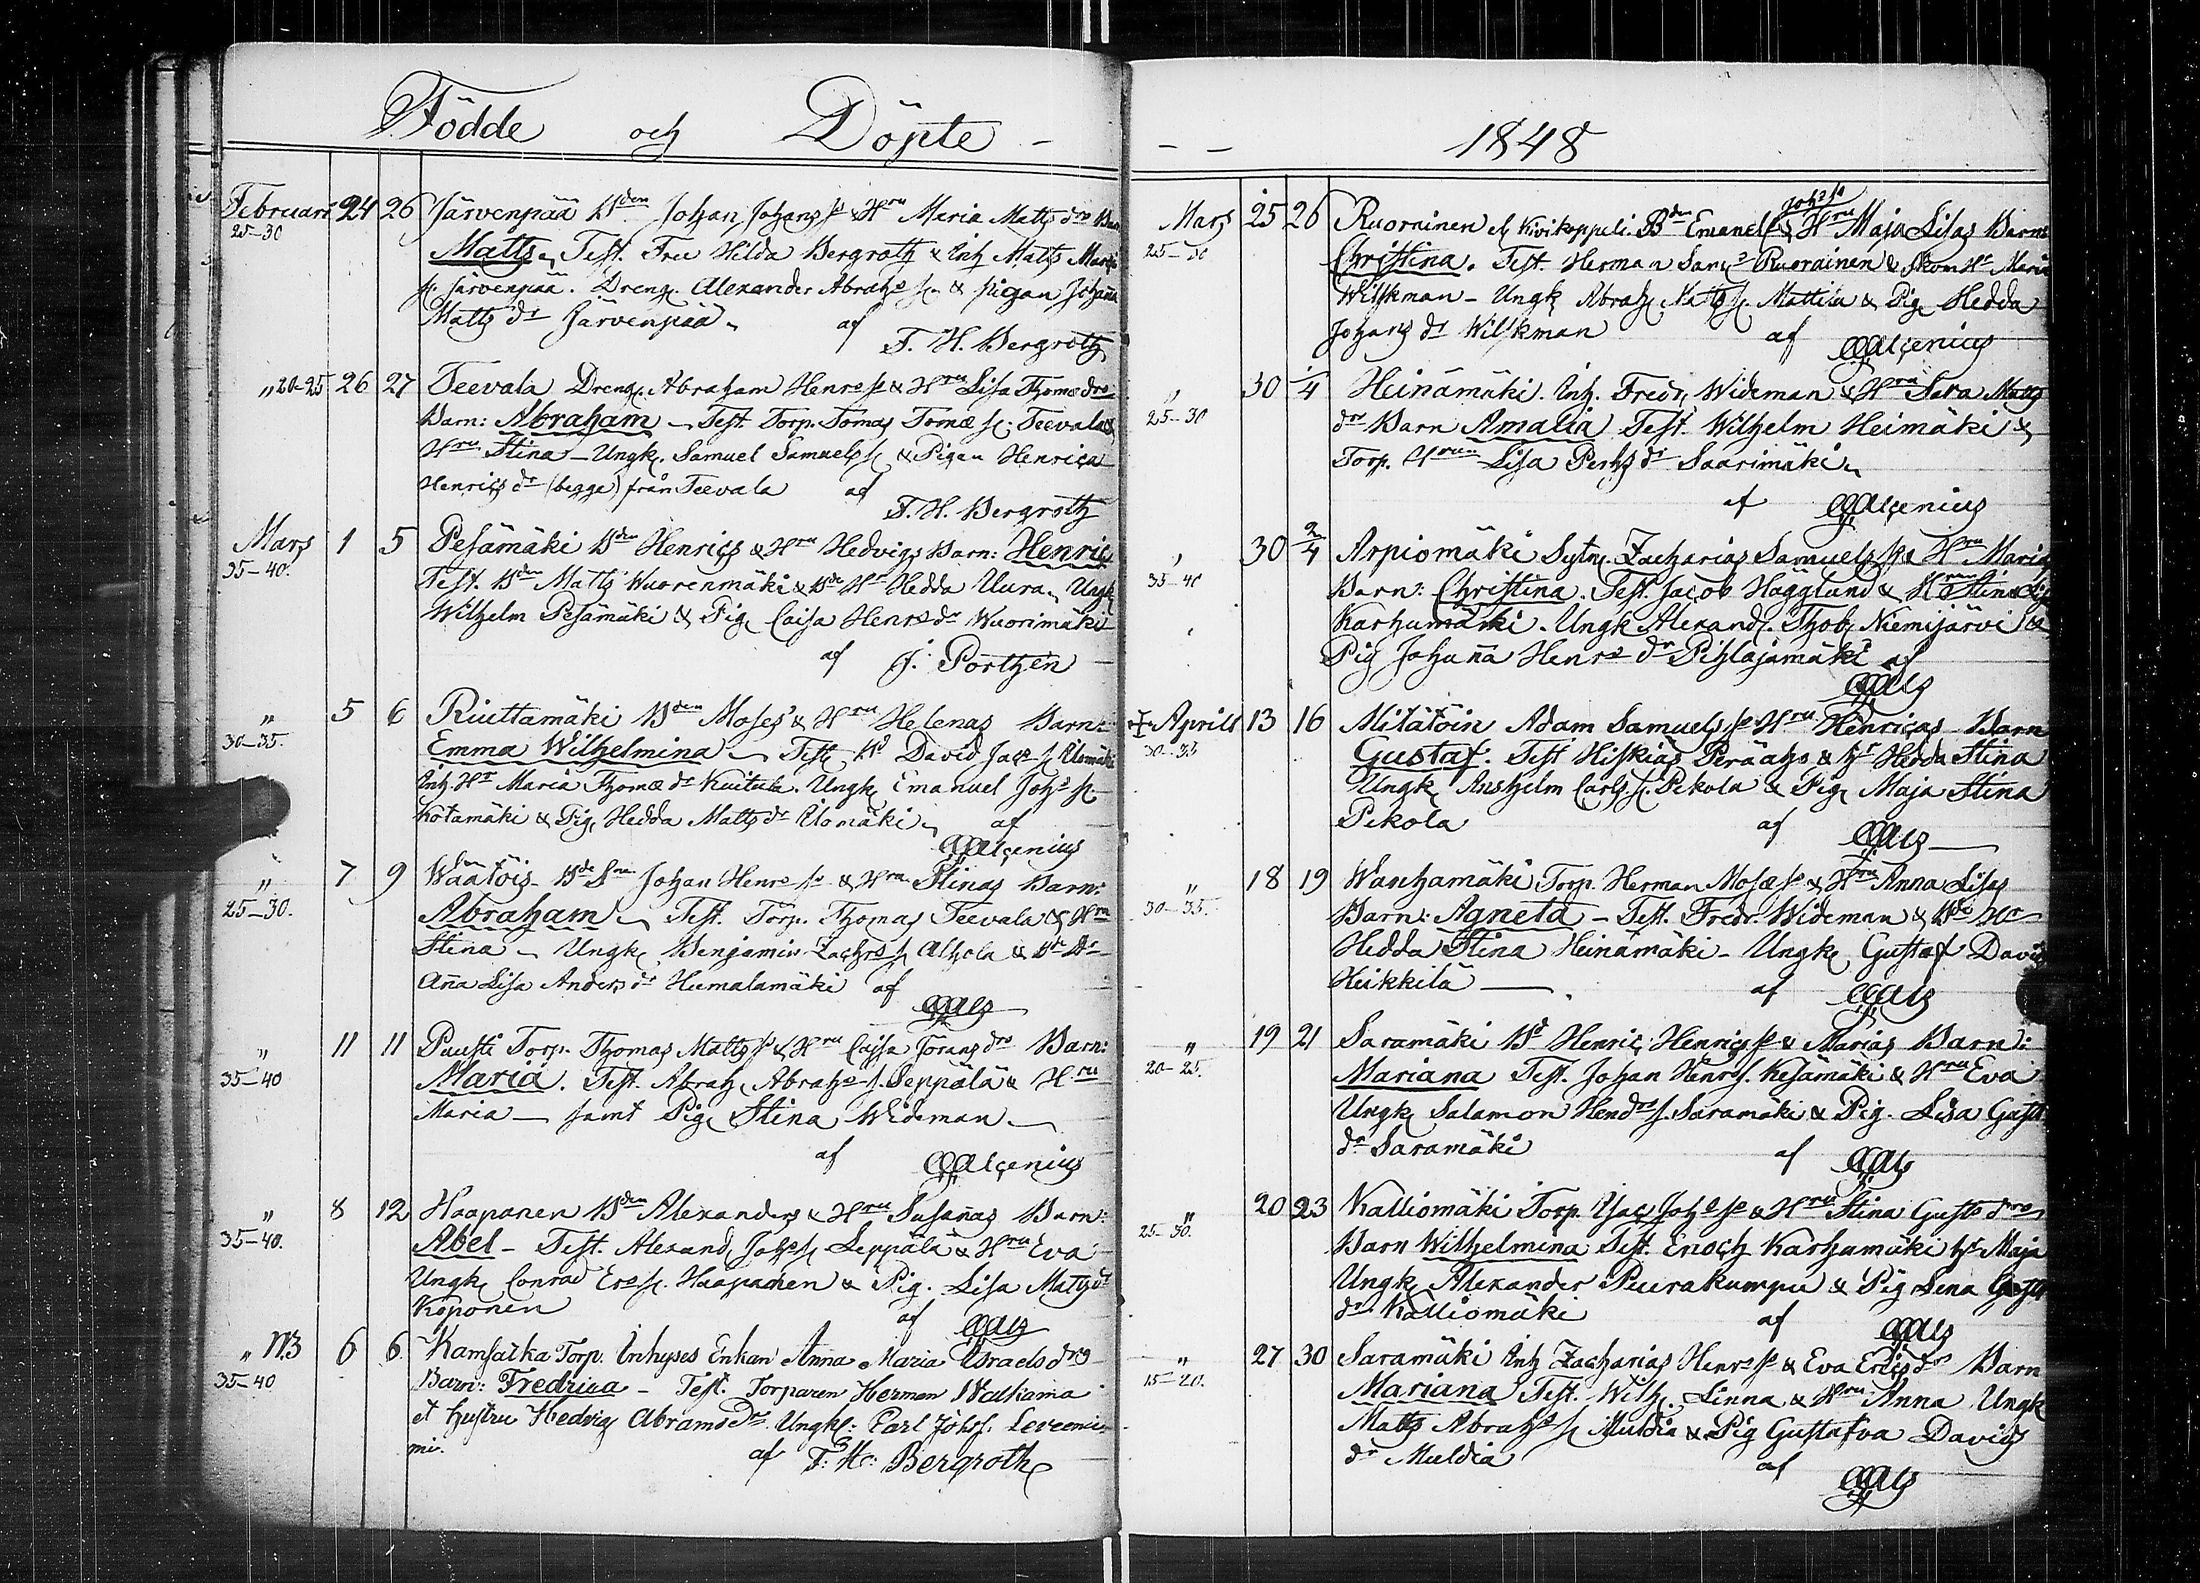 Födde och Döpte -
Februari 24 26 Järvenpää Bden Johan Johans so & Hru Maria Matts dros Barn
25-30 Matts Test. Fru Hilda Bergroth & Inh Matts Matts
s. Järvenpää. Dreng. Alexander Abrahs s. & pigan Johanna
Matts dr Järvenpää af
F. H. Bergroth
" 20-25 26 27 Teevala Dreng. Abraham Henrs so & Hru Lisa Thomæ dros
Barn: Abraham Test. Torp. Tomas Tomæ s: Teevala &
Hru Stina - Ungk. Samuel Samuels s & Pigan Henrica
Henrics dr (begge) från Teevala af
F. H. Bergroth
Mars 1 5 Pesämäki Bden Henrics & Hru Hedvigs Barn: Henric
35-40. Test. Bden Matts Wuorenmäki & Bde Hr Hedda Uura, Ungk
Wilhelm Pesämäki & Pig. Caisa Henrs dr Wuorimäki
af J. Porthén
" 5 6 Riuttamäki Bden Moses & Hru Helenas Barn:
30-35. Emma Wilhelmina Test. Bd David Jacs s Ulomäki
Inh Hr Maria Thomæ dr Kuitula. Ungk Emanuel Johs s.
Kotamäki & Pig. Hedda Matts dr Ulomäki af
Algenius
" 7 9 Wäätöis Bde Sn Johan Henrs so & Hru Stinas Barn:
25-30. Abraham Test. Torp. Thomas Teevala & Hru
Stina Ungk. Benjamin Zachrs s Alhola & Bde Dr
Anna Lisa Anders dr Humalamäki af
11 11 Puusti Torp. Thomas Matts so & Hru Caisa Görans dros Barn:
35-40 Maria. Test. Abrah. Abrahs s. Seppälä & Hru
Maria samt Pig. Stina Wideman
af Algenius
" 8 12 Haapanen Bden Alexanders & Hru Susannas Barn:
35-40. Abel - Test. Alexand. Johs s Leppälä & Hru Eva
Ungk Conrad Ers s. Haapanen & Pig. Lisa Matts dr
Koponen af
" N.3 6 6 Kamsatka Torp. Inhyses Enkan Anna Maria Israels drs
35-40 Barn: Fredrica - Test. Torparen Herman Walkama
et hustru Hedvig Abrams Dr. Ungkl: Carl Johss. Leveenie-
mi. af F: H: Bergroth
- - 1848
Johs so
Mars 25 26 Ruorainen el Kivikoppeli. Bden Emanuel & Hru Maja Lisas Barn
25-30 Christina. Test. Herman Sams Ruorainen & skom Hr Maria
Wilskman - Ungk Abrah. Matts s. Mattila & Pig Hedda
Johans dr Wilskman af Algenius
" 30 1/4 Heinämäki. Inh. Fredr. Wideman & Hru Sara Matts
25-30 dr Barn Amalia Test. Wilhelm Heimäki &
Torp. Hrun Lisa Perhs dr Saarimäki
af Algenius
" 30 2/4 Arpiomäki Sytn. Zacharias Samuels so & Hru Marias
35-40 Barn: Christina. Test. Jacob Hägglund & Hrun Stina Lis
Karhumäki. Ungk Alexand. Thob. Niemijärvi &
Pig Johanna Henrs dr Pihlajamäki af
+ Aprill 13 16 Mitätöin Adam Samuels so Hru Henricas Barn
30-35 Gustaf. Test Hiskias Peräaho & hr Hedda Stina
Ungk Anshelm Carls s. Pekola & Pig. Maja Stina
Pekola af
" 18 19 Wanhamäki Torp. Herman Mosæ so & Hru Anna Lisas
30-35. Barn: Agneta - Test. Fredr. Wideman & Bde Hr
Hedda Stina Heinämäki - Ungk Gustaf David
Heikkilä af
" 19 21 Saramäki Bd Henric Henrics so & Marias Barn:
20-25. Mariana Test. Johan Henrs s. Kesämäki & Hru Eva
Ungk Salamon Hendrs s. Saramäki & Pig. Lisa Gusts
dr Saramäki af
" 20 23 Kalliomäki Torp. Isac Johs so & Hru Stina Gusts dros
25-30. Barn Wilhelmina Test. Enoch Karhumäki hr Maja
Ungk Alexander Peurakumpu & Pig Lena Gusts
dr Kalliomäki af
" 27 30 Saramäki Inh Zacharias Henrs so & Eva Erics drs Barn
15-20. Mariana Test. Wilh. Linna & Hru Anna Ungk
Matts Abrahs s Muldia & Pig Gustafva Davids
dr Muldia af